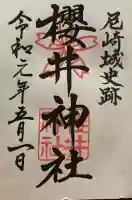 尼崎城史跡
櫻井神社
令和元年五月一日